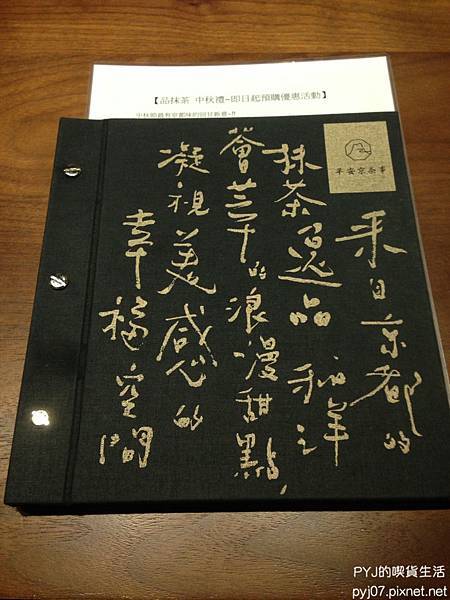 【品抹茶 中秋禮~即日起預購優惠活動】
中秋節最有京都味的回甘新意~!!
平安京茶事
來自京都的
抹茶逸品 和洋
薈萃的浪漫甜點,
凝視美感的
幸福空間
PYJ的喫貨生活
pyj07.pixnet.net